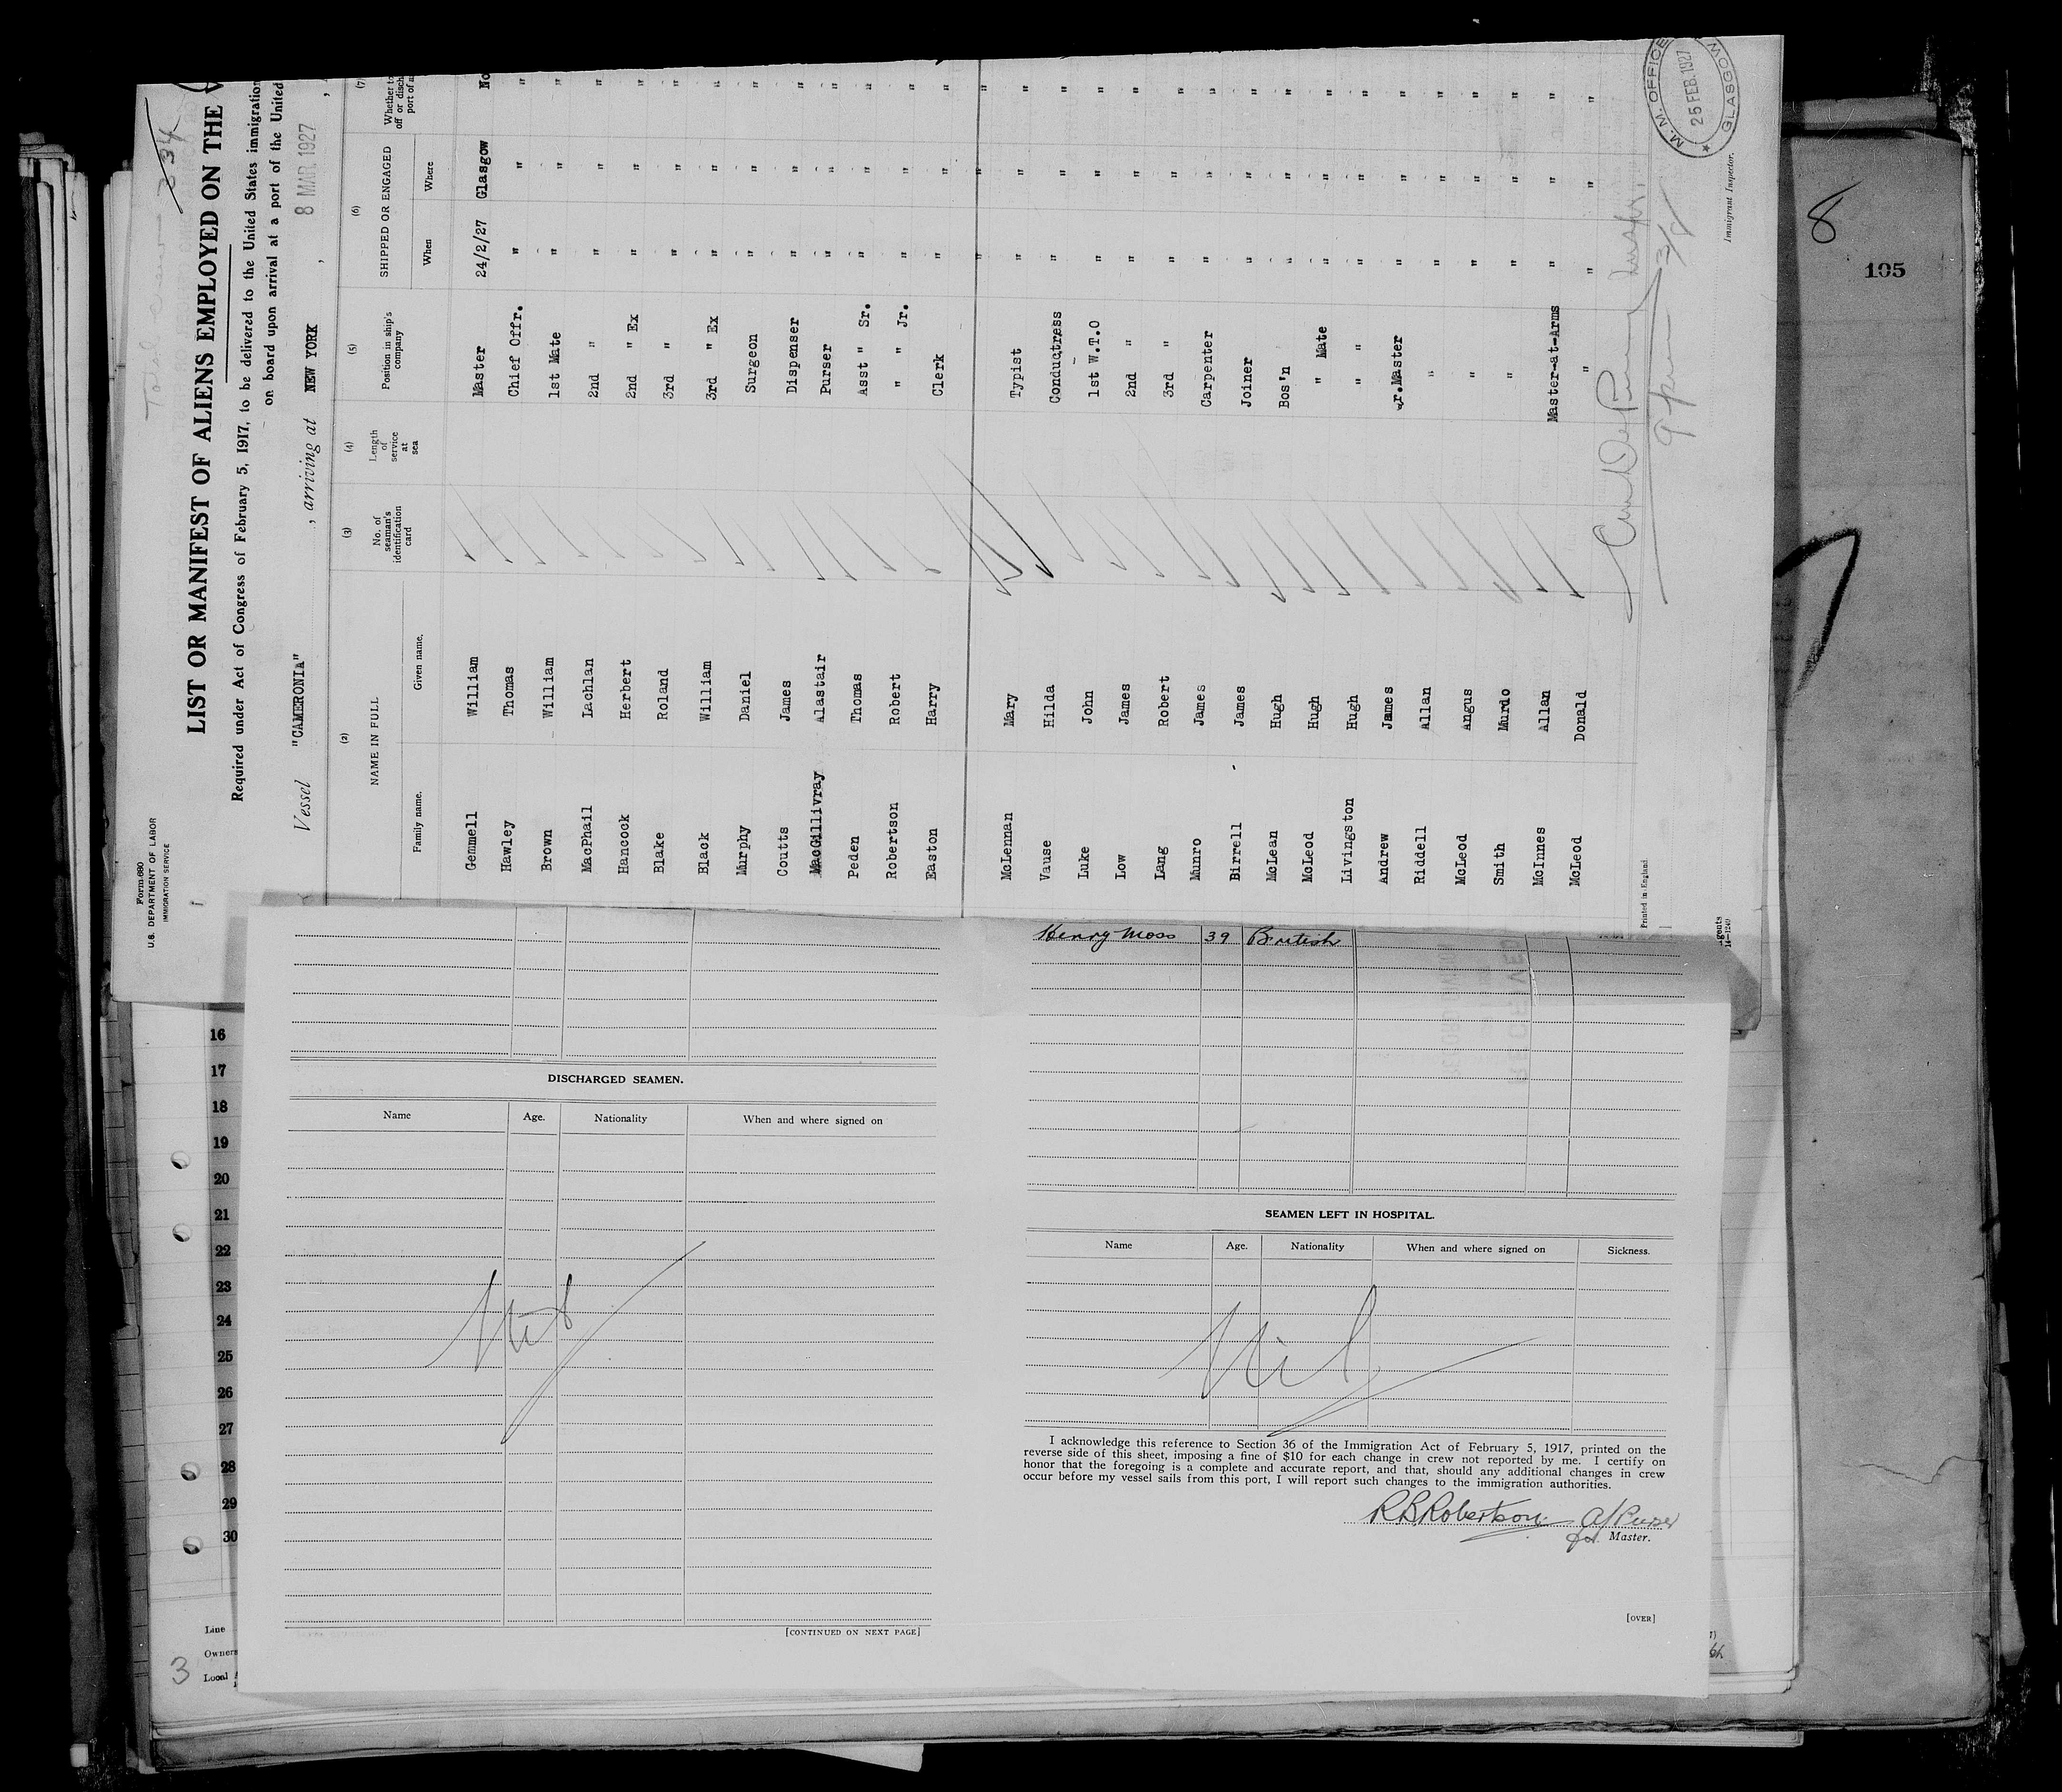 Form 680
U.S. DEPARTMENT OF LABOR
IMMIGRATION SERVICE
Total Crew 234
LIST OR MANIFEST OF ALIENS EMPLOYED ON THE
Required under Act of Congress of February 5, 1917, to be delivered to the United States immigration
on board upon arrival at a port of the United
Vessel "CAMERONIA" , arriving at NEW YORK , 8 MAR 1927 ,
(2) (3) (4) (5) (6) (7)
NAME IN FULL No. of seaman's identification card Length of service at sea Position in ship's company SHIPPED OR ENGAGED Whether to
off or disch
port of a
Family name. Given name. When Where
Gemmell William Master 24/2/27 Glasgow No
Hawley Thomas Chief Offr. " " "
Brown William 1st Mate " " "
MacPhail Lachlan 2nd " " " "
Hancock Herbert 2nd " Ex " " "
Blake Roland 3rd " " " "
Black William 3rd " Ex " " "
Murphy Daniel Surgeon " " "
Coutts James Dispenser " " "
MacGillivray Alastair Purser " " "
Peden Thomas Asst " Sr. " " "
Robertson Robert " " Jr. " " "
Easton Harry Clerk " " "
" " "
McLennan Mary Typist " " "
Vause Hilda Conductress " " "
Luke John 1st W.T.O " " "
Low James 2nd " " " "
Lang Robert 3rd " " " "
Munro James Carpenter " " "
Birrell James Joiner " " "
McLean Hugh Bos'n " " "
McLeod Hugh " Mate " " "
Livingston Hugh " " " " "
Andrew James Qr.Master " " "
Riddell Allan " " " "
McLeod Angus " " " "
Smith Murdo " " " "
McInnes Allan Master-at-Arms " " "
McLeod Donald " " " "
Printed in England.
Immigrant Inspector.
M. M. OFFICE
25 FEB. 1927
GLASGOW
8
195
Henry Moss 39 British
16
17
18
19
20
21
22
23
24
25
26
27
28
29
30
Line
Owners
Local
3
DISCHARGED SEAMEN.
Name Age. Nationality When and where signed on
Nil
[CONTINUED ON NEXT PAGE]
SEAMEN LEFT IN HOSPITAL.
Name Age. Nationality When and where signed on Sickness.
Nil
I acknowledge this reference to Section 36 of the Immigration Act of February 5, 1917, printed on the
reverse side of this sheet, imposing a fine of $10 for each change in crew not reported by me. I certify on
honor that the foregoing is a complete and accurate report, and that, should any additional changes in crew
occur before my vessel sails from this port, I will report such changes to the immigration authorities.
R B Robertson A/Purser
for Master.
[OVER]